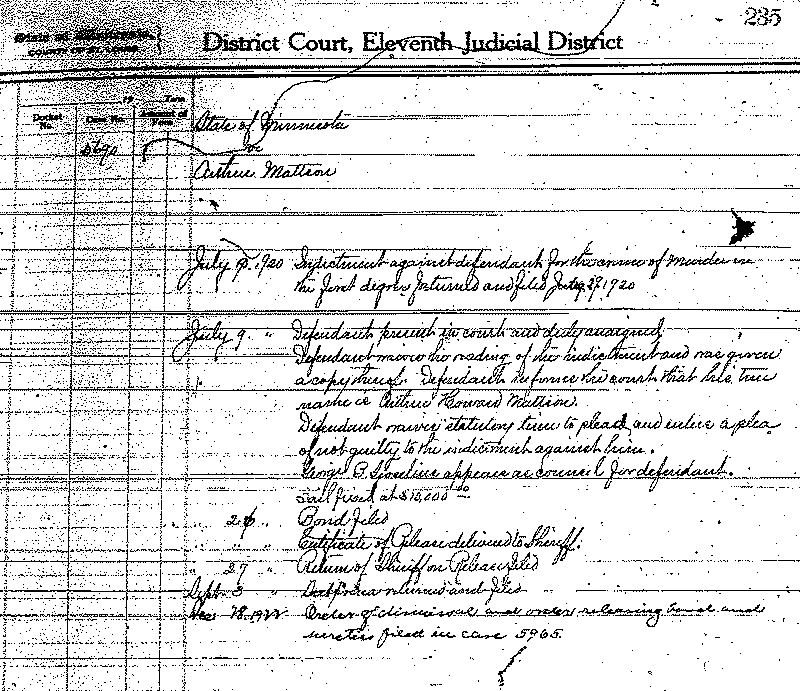 235
State of Minnesota,
County of St. Louis.
District Court, Eleventh Judicial District
19 Term
Docket No. Case No. Amount of
5690
State of Minnesota
vs
Arthur Mattson
July 9, 1920 Indictment against defendant for the crime of Murder in
the first degree returned and filed 1920
July 9. " Defendant present in court and duly arraigned
Defendant waives the reading of the indictment and was given
a copy thereof. Defendant informs the court that his true
name is Arthur Howard Mattson.
Defendant waives statutory time to plead and enters a plea
of not guilty to the indictment against him.
George B. appears as council for defendant.
Bail fixed at $10,000 00
" 26 " Bond filed
" " " Certificate of Release delivered to Sheriff.
" 27 " Return of Sheriff on Release filed
Sept. 3 " returned and filed
Dec 18, 1922 Order of dismissal and order releasing bond and
sureties filed in case 5965.